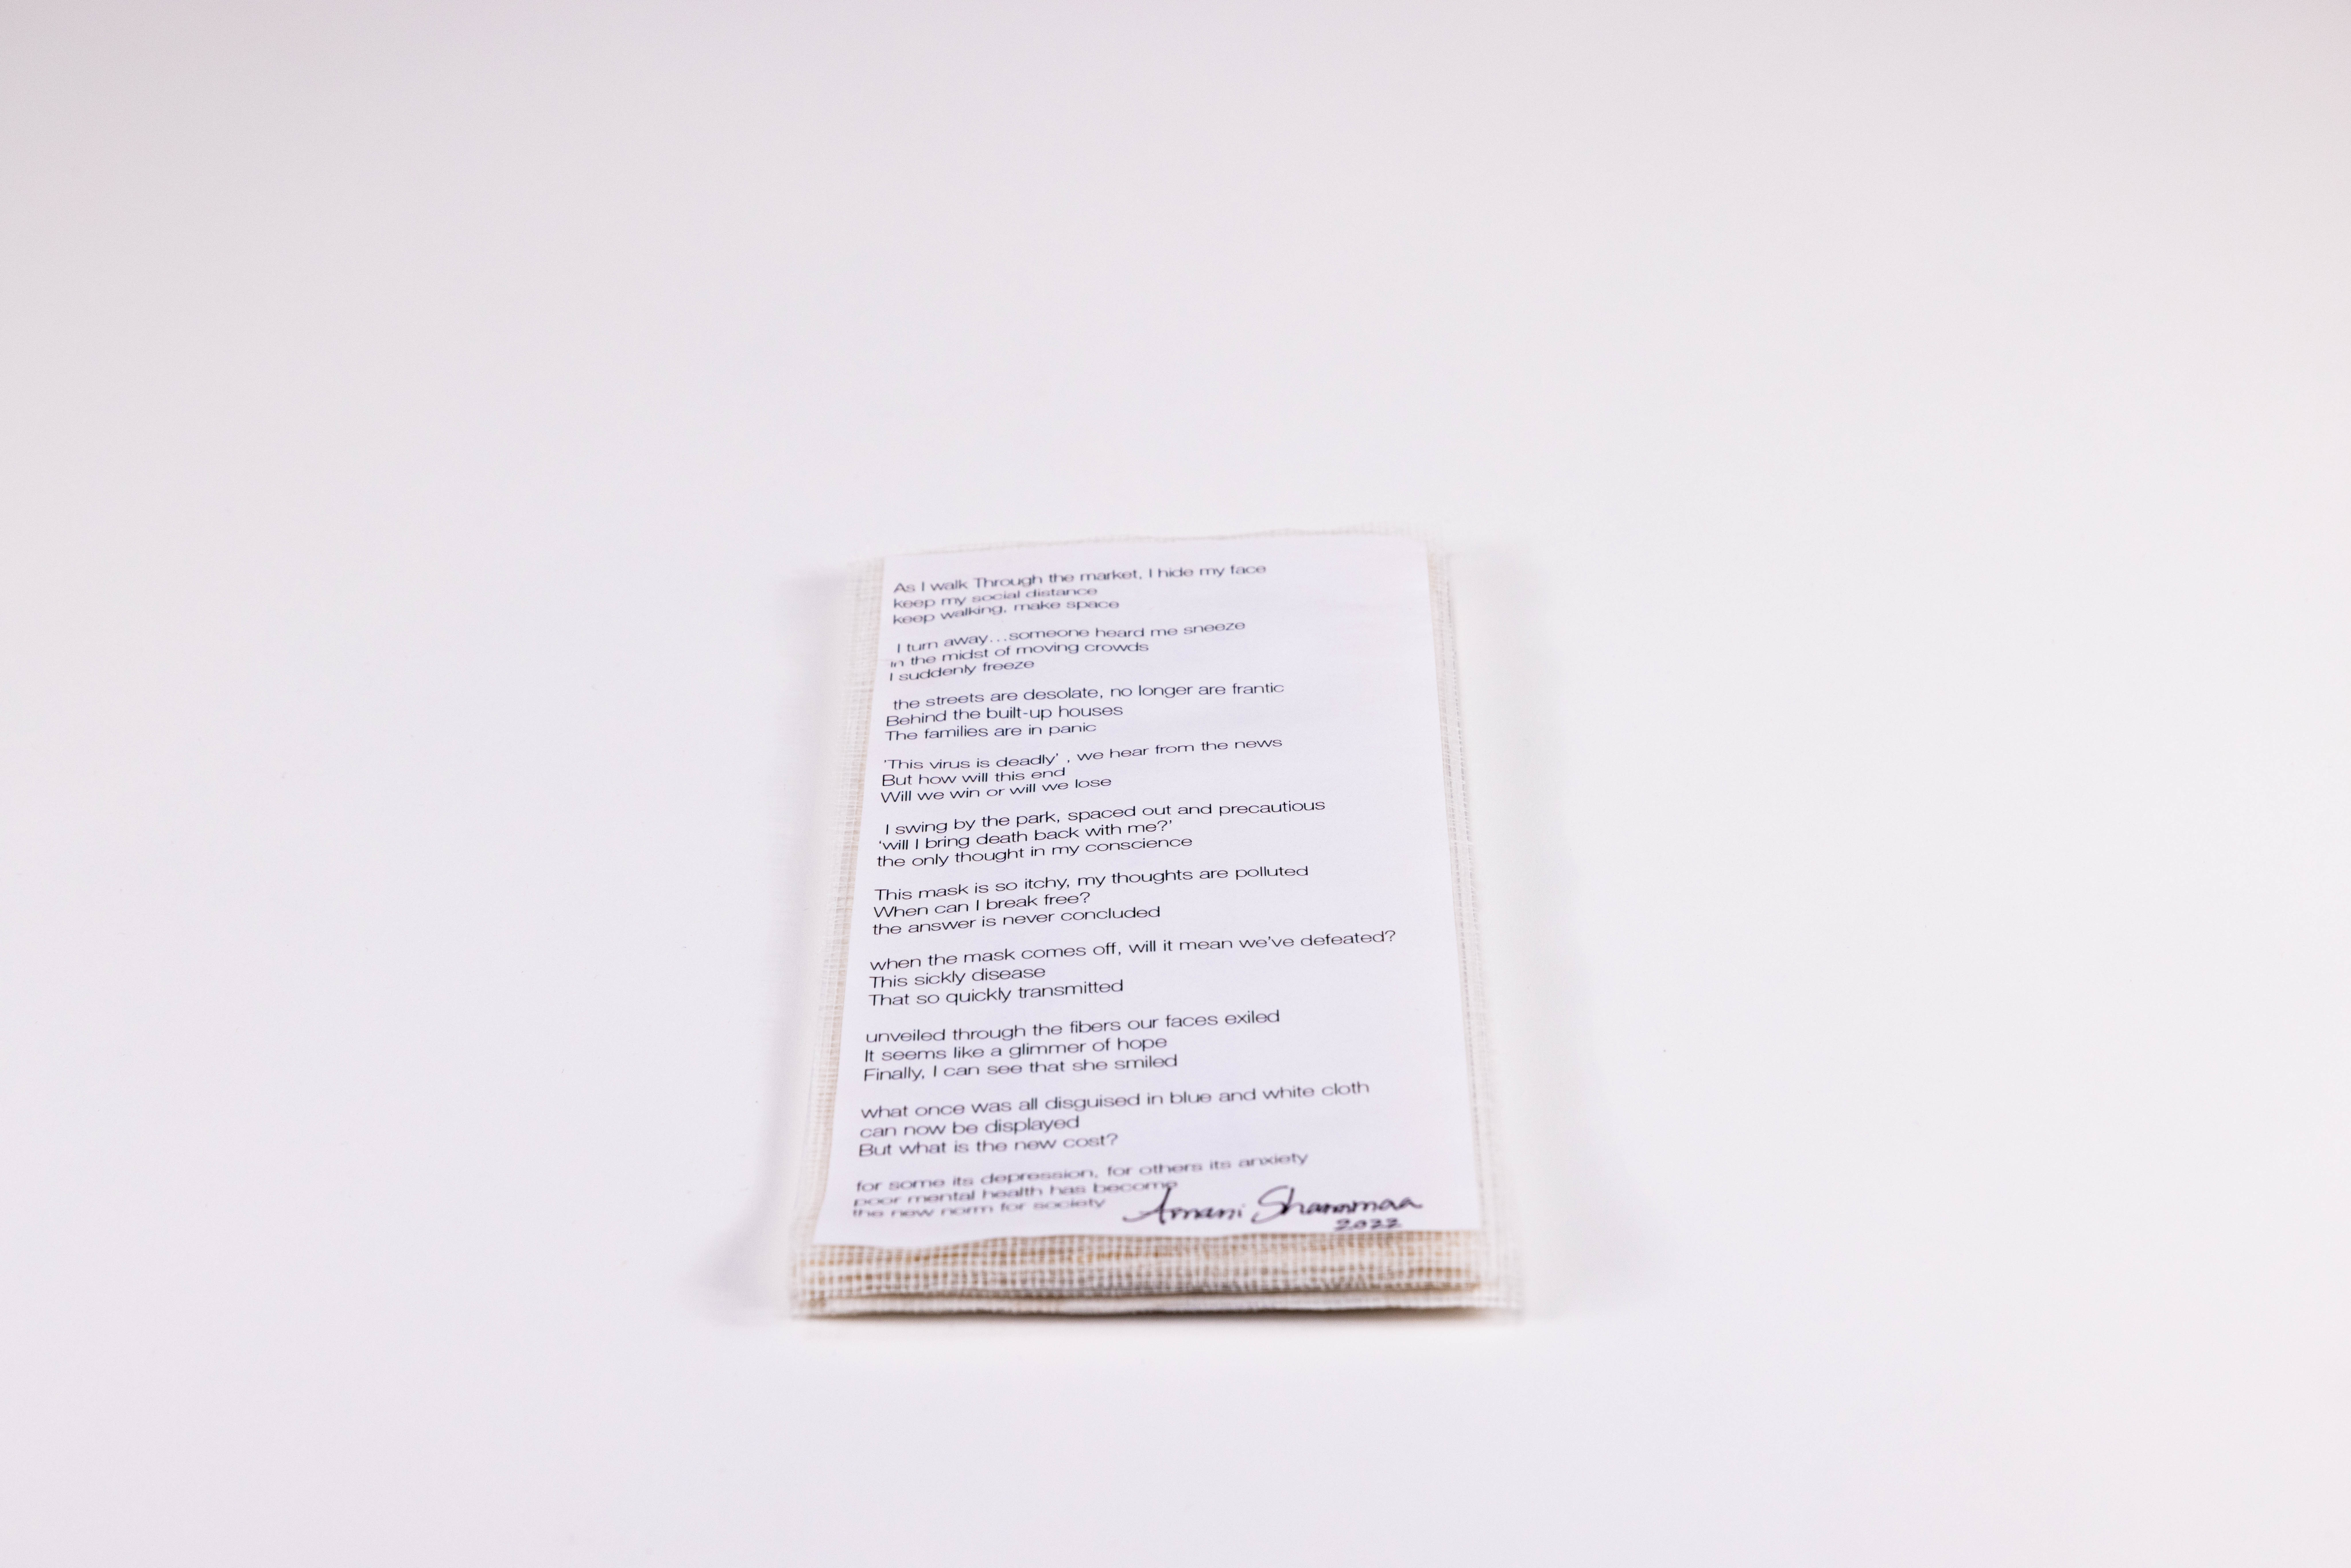 As I walk Through the market, I hide my face
keep my social distance
keep walking, make space
I turn away...someone heard me sneeze
in the midst of moving crowds
I suddenly freeze
the streets are desolate, no longer are frantic
Behind the built-up houses
The families are in panic
'This virus is deadly' , we hear from the news
But how will this end
Will we win or will we lose
I swing by the park, spaced out and precautious
'will I bring death back with me?'
the only thought in my conscience
This mask is so itchy, my thoughts are polluted
When can I break free?
the answer is never concluded
when the mask comes off, will it mean we've defeated?
This sickly disease
That so quickly transmitted
unveiled through the fibers our faces exiled
It seems like a glimmer of hope
Finally, I can see that she smiled
what once was all disguised in blue and white cloth
can now be displayed
But what is the new cost?
for some its depression, for others its anxiety
poor mental health has become
the new norm for society
Amani Shammaa
2022